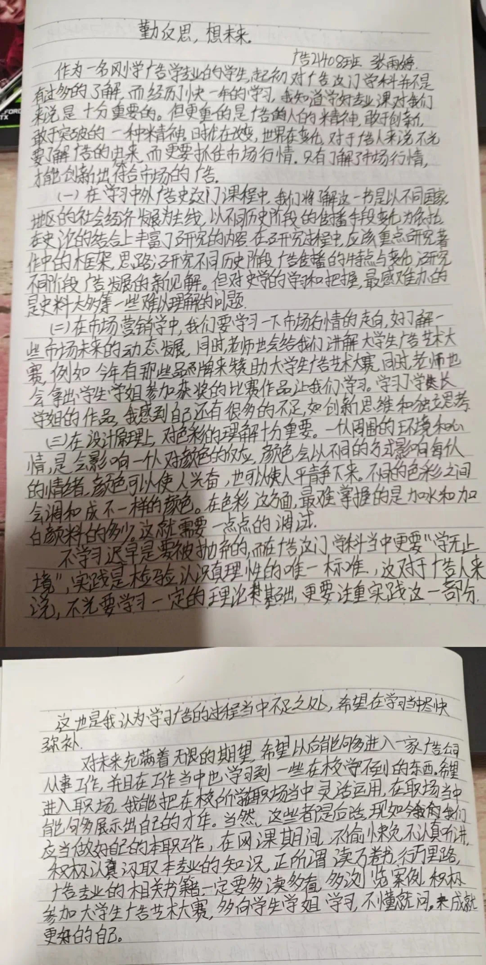 勤反思,想未来.
广告21408班 张雨婷
作为一名刚学广告学专业的学生,起初对广告这门学科并不是
有过多的了解,而经历了快一年的学习,我知道学好专业课对我们
来说是十分重要的。但更重的是广告的人的精神,敢于创新,
敢于突破的一种精神,时代在改变,世界在变化,对于广告人来说不光
要了解广告的由来,而更要抓住市场行情。只有了解了市场行情,
才能创新出符合市场的广告。
(一)在学习中外广告史这门课程中,我们将了解这一书是以不同国家
地区的社会经济发展为主线,以不同历史阶段的传播手段变化为
在史论的结合上丰富了研究的内容,在研究过程中,应该重点研究著
作中的框架,思路;研究不同历史阶段广告传播的特点与变化;研究
不同阶段广告发展的新见解。但对史学的学习和把握,最感难办的
是史料太多等一些难以理解的问题.
(二)在市场营销学中,我们要学习一下市场行情的走向,好了解一
些市场未来的动态发展,同时老师也会给我们讲解大学生广告艺术大
赛,例如今年有那些品牌来赞助大学生广告艺术大赛,同时老师也
会拿出学生学姐参加获奖的比赛作品让我们学习。学习了学长
学姐的作品,我感到自己还有很多的不足,如创新思维和独立思考
(三)在设计原理上,对色彩的理解十分重要。一个人周围的环境和心
情,是会影响一个人对颜色的反应,颜色会以不同的方式影响每个人
的情绪,颜色可以使人兴奋,也可以使人平静下来。不同的色彩之间
会调和成不一样的颜色。在色彩这方面,最难掌握的是加水和加
白颜料的多少。这就需要一点点的调试.
不学习迟早是要被抛弃的,而在广告这门学科当中更要“学无止
境”,实践是检验认识真理性的唯一标准,这对于广告人来
说,不光要学习一定的理论基础,更要注重实践这一部分.
这也是我认为学习广告的过程当中不足之处,希望在学习当中尽快
弥补.
对未来充满着无限的期望,希望以后能够进入一家广告公司
从事工作,并且在工作当中也学习到一些在校学不到的东西.希望
进入职场,我能把在校所学在职场当中灵活运用,在职场当中
能够多展示出自己的才华。当然,这些都是后话,现如今我们
应当做好自己的本职工作,在网课期间,不偷懒不认真听讲,
积极认真汲取本专业的知识,正所谓读万卷书,行万里路,
广告专业的相关书籍一定要多读多看,多浏览案例,积极
参加大学生广告艺术大赛,多向学生学姐学习,不懂就问,来成就
更好的自己。